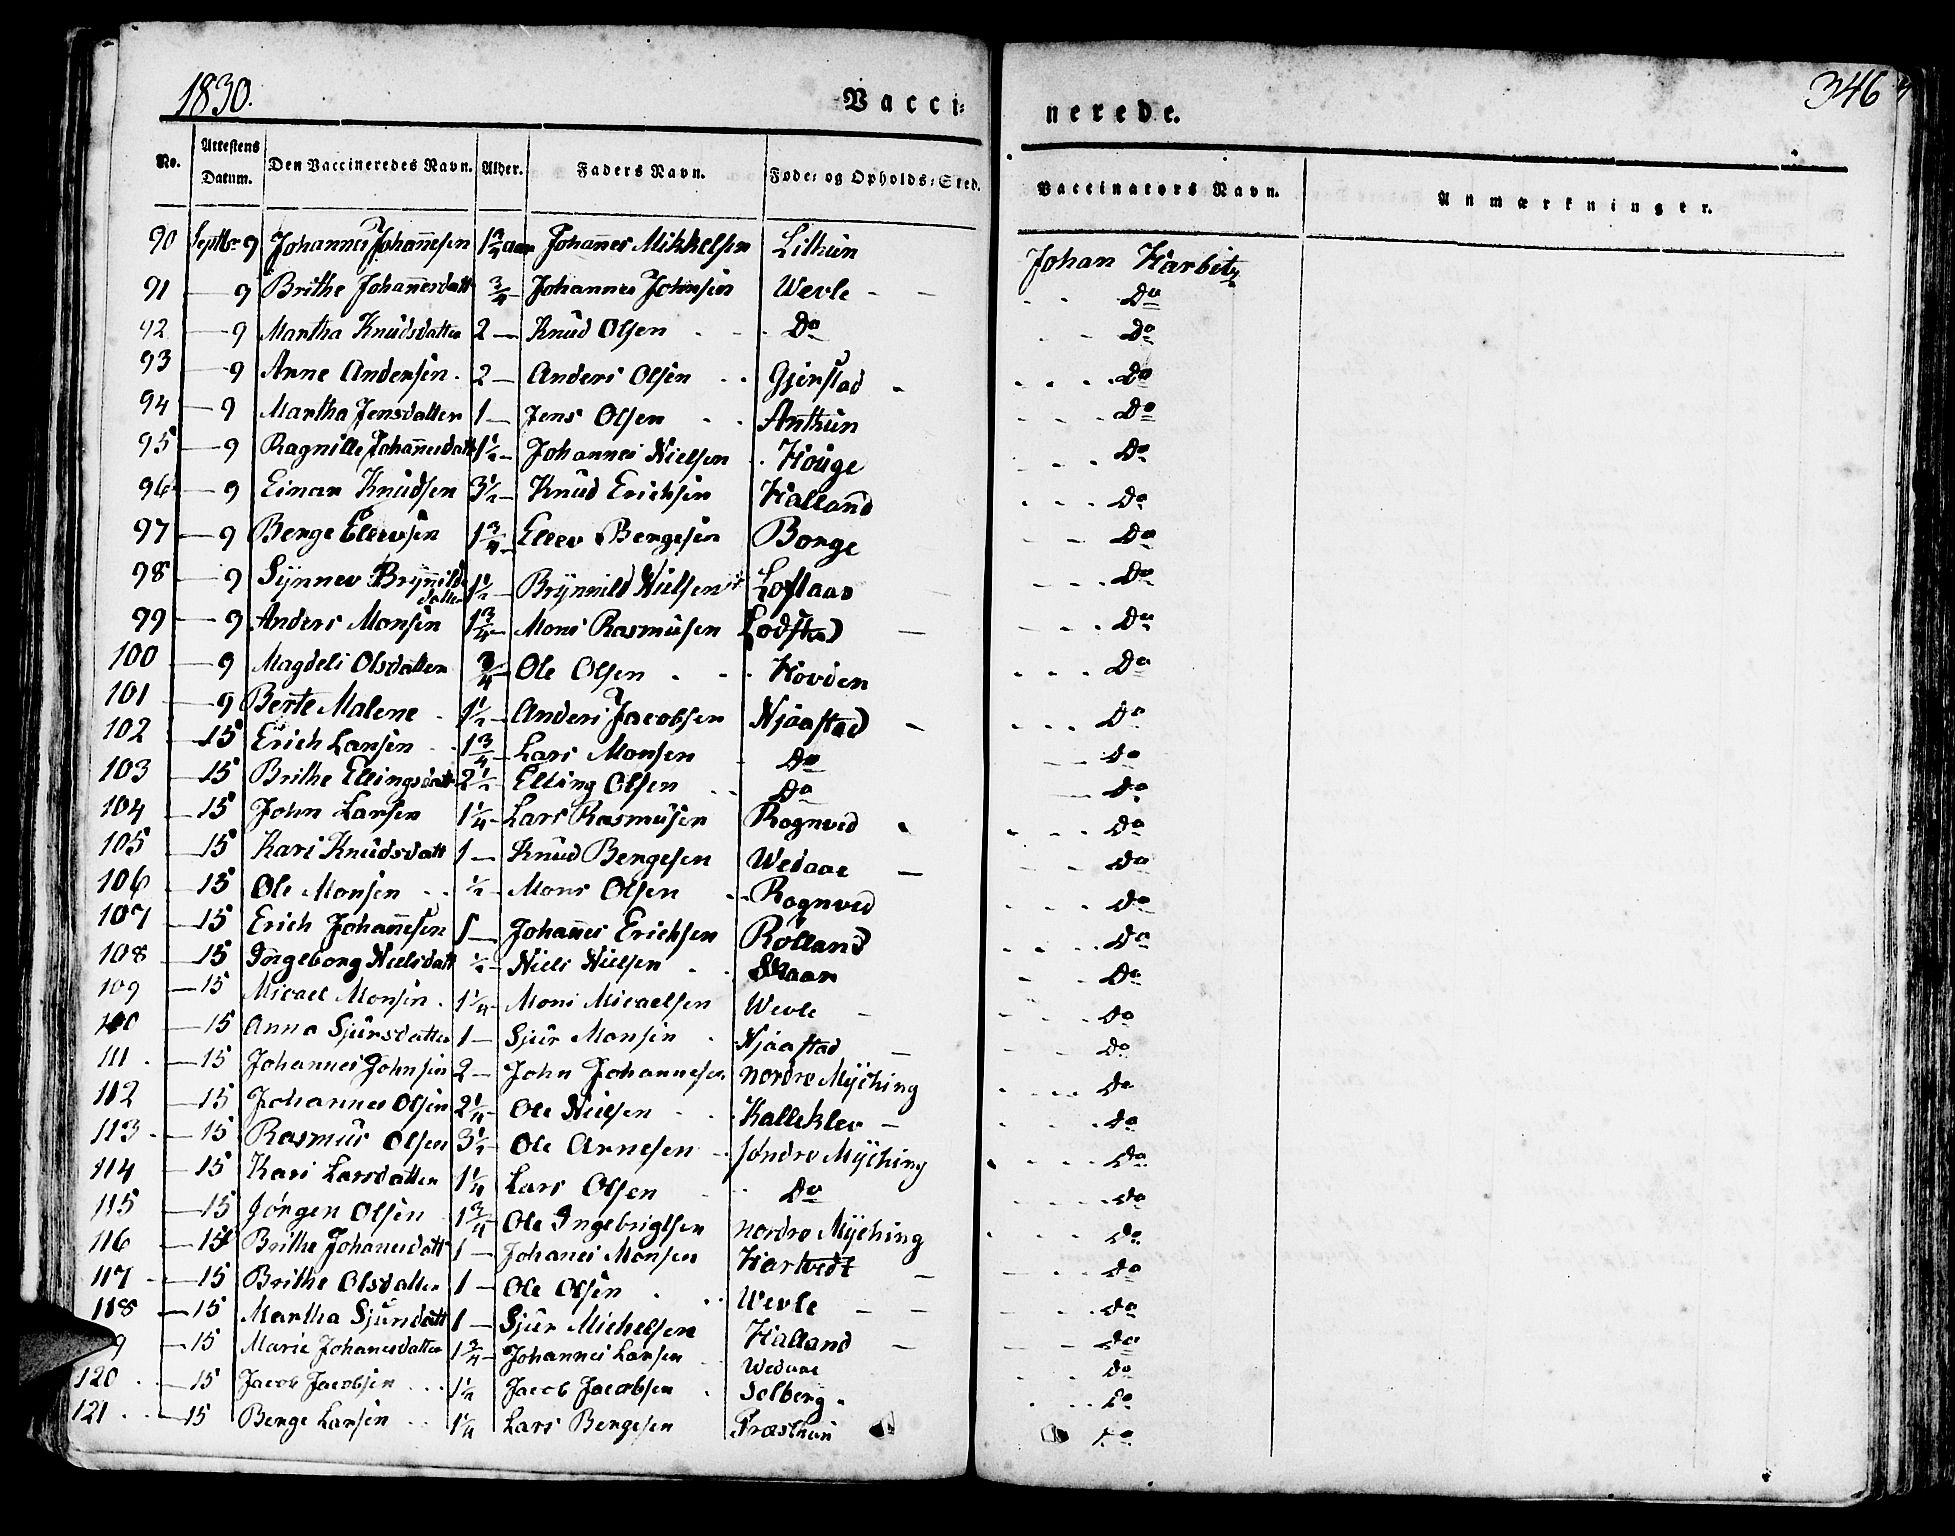 1830. Vacci= nerede. 346
No. Attestens Datum. Den Vaccineredes Navn. Alder. Faders Navn. Føde= og Opholds=Sted. Vaccinateurs Navn. Anmærkninger.
90 Septbr 9 Johannes Johan̄esen 1 3/4 aar Johan̄es Mikkelsen Lithun Johan Harbitz
91 — 9 Brithe Johan̄esdatt 3/4 — Johannes Johnsen Wevle - - Do
92 — 9 Martha Knudsdatter 2 — Knud Olsen Do Do
93 — 9 Arne Andersen 2 — Anders Olsen Gjerstad Do
94 — 9 Martha Jensdatter 1 — Jens Olsen Anthun Do
95 — 9 Ragnille Johan̄esdatt 1 1/2 — Johannes Nielsen Houge Do
96 — 9 Einar Knudsen 3 1/2 — Knud Erichsen Halland Do
97 — 9 Berge Ellevsen 1 3/4 — Ellev Bergesen Borge Do
98 — 9 Synnev Bryn̄ilds datter 1 1/2 — Brynnild Nielsen Loftaas Do
99 — 9 Anders Monsen 1 3/4 — Mons Rasmusen Lodstad — Do
100 — 9 Magdeli Olsdatter 3/4 — Ole Olsen Hovden Do
101 — 9 Berte Malene 1 1/2 — Anders Jacobsen Njaastad - Do
102 — 15 Erich Larsen 1 3/4 — Lars Monsen Do Do
103 — 15 Brithe Ellingsdatt 2 1/2 — Elling Olsen Do Do
104 — 15 John Larsen 1 1/4 — Lars Rasmusen Rognved Do
105 — 15 Kari Knudsdatt 1 — Knud Bergesen Wedaae — Do
106 — 15 Ole Monsen 1/2 — Mons Olsen Rognved Do
107 — 15 Erich Johan̄esen 1 — Johan̄es Erichsen Rolland Do
108 — 15 Ingeborg Nielsdatt 1/2 — Niels Nielsen Skaar Do
109 — 15 Micael Monsen 1 1/4 — Mons Micaelsen Wevle - Do
110 — 15 Anna Sjursdatter 1 — Sjur Monsen Njaastad — Do
111 — 15 Johannes Johnsen 2 — John Johannesen nordre Mÿching Do
112 — 15 Johannes Olsen 2 1/4 — Ole Nielsen Kalleklev — Do
113 — 15 Rasmus Olsen 3 1/2 — Ole Arnesen søndre Mÿching Do
114 — 15 Kari Larsdatter 1 1/4 Lars Olsen Do Do
115 — 15 Jørgen Olsen 1 3/4 Ole Ingebrigtsen nordre Mÿching Do
116 — 15 Brithe Johanesdatt 1 — Johanes Monsen Hartvedt — Do
117 — 15 Brithe Olsdatter 1 — Ole Olsen Wevle — — Do
118 — 15 Martha Sjursdatt 1 — Sjur Michelsen Halland — Do
9 — 15 Marie Johanesdatter 1 3/4 — Johannes Larsen Wedaae Do
120 — 15 Jacob Jacobsen 1 1/2 Jacob Jacobsen Solberg Do
121 — 15 Berge Larsen 1 1/4 Lars Bergesen Træsthun Do